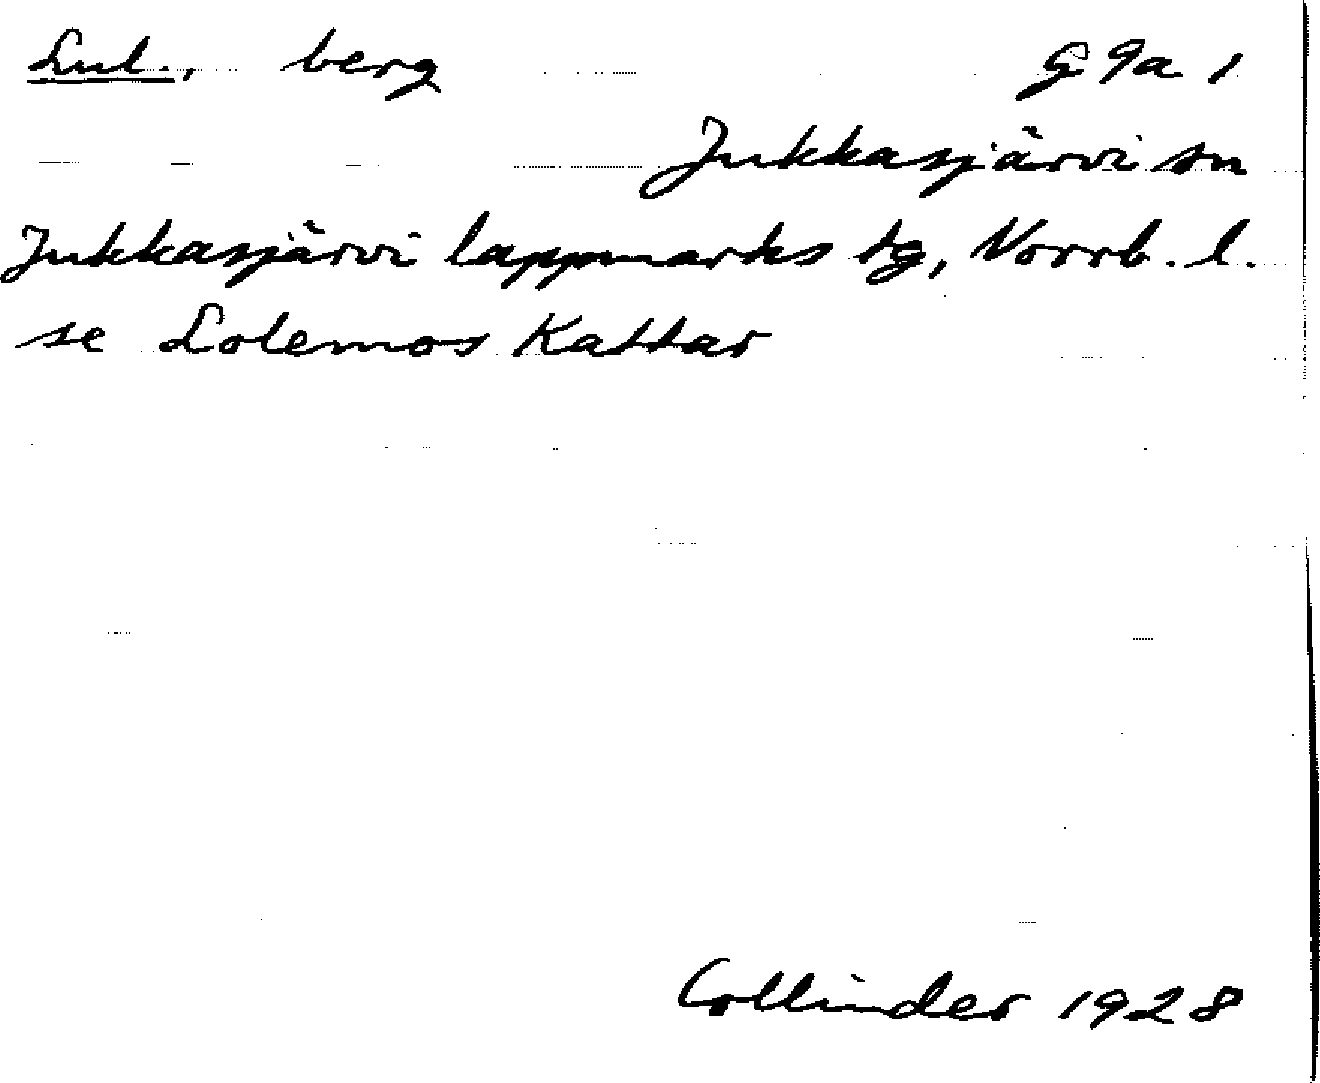 Lul., berg G 9a 1
Jukkasjärvi sn
Jukkasjärvi lappmarks tg, Norrb. l.
se Lolemos Kattar
Collinder 1928